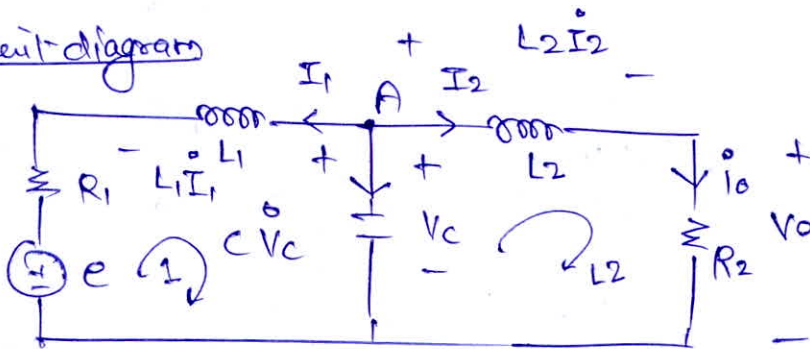 cuit diagram
+ L2İ2 -
I1 A I2
- L1İ1 + L1
+ L2
R1 C V̇c Vc i̊o +
e 1 - L2 R2 Vo
-